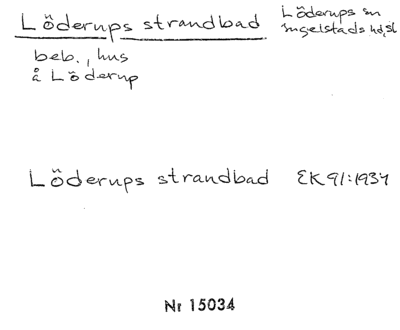 Löderups strandbad
Löderups sn
Ingelstads hd, Sk
beb., hus
å Löderup
Löderups strandbad EK 91:1937
Nr 15034